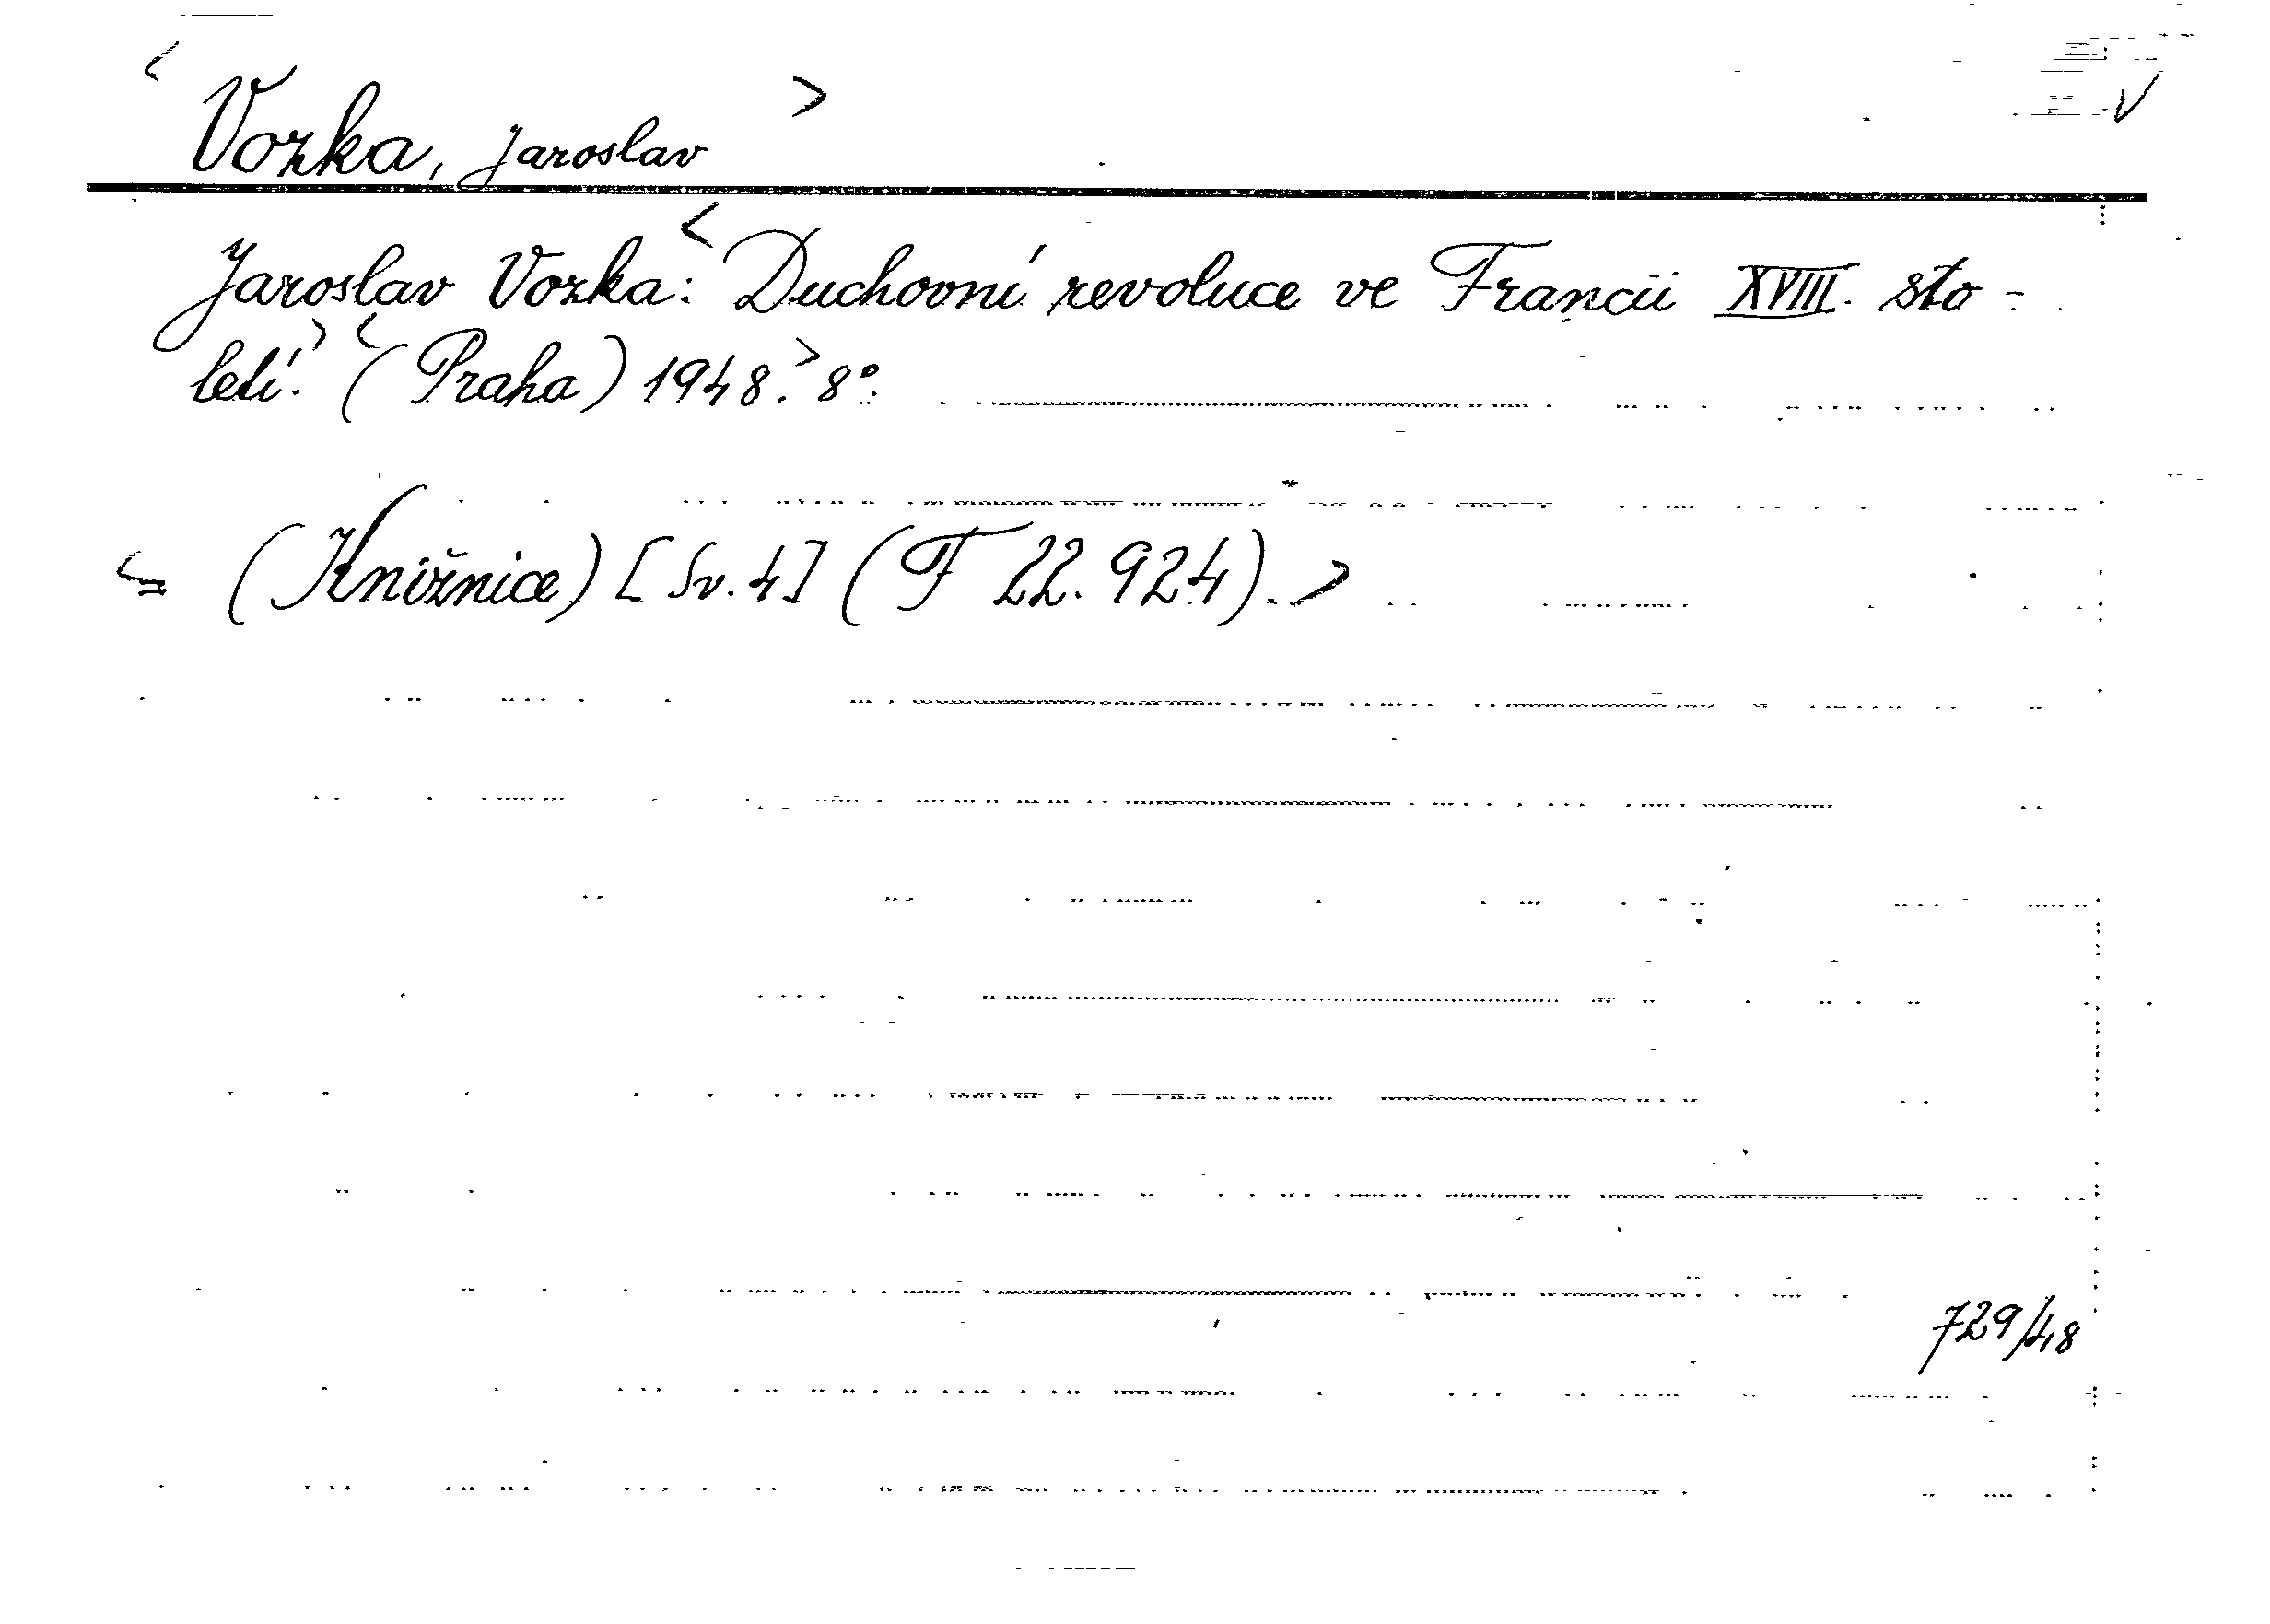 < Vozka, Jaroslav > √
Jaroslav Vozka: < Duchovní revoluce ve Francii XVIII. sto-
letí. > < (Praha) 1948. > 8°.
< = (Knižnice) [Sv. 4] (F 22.924). >
729/48